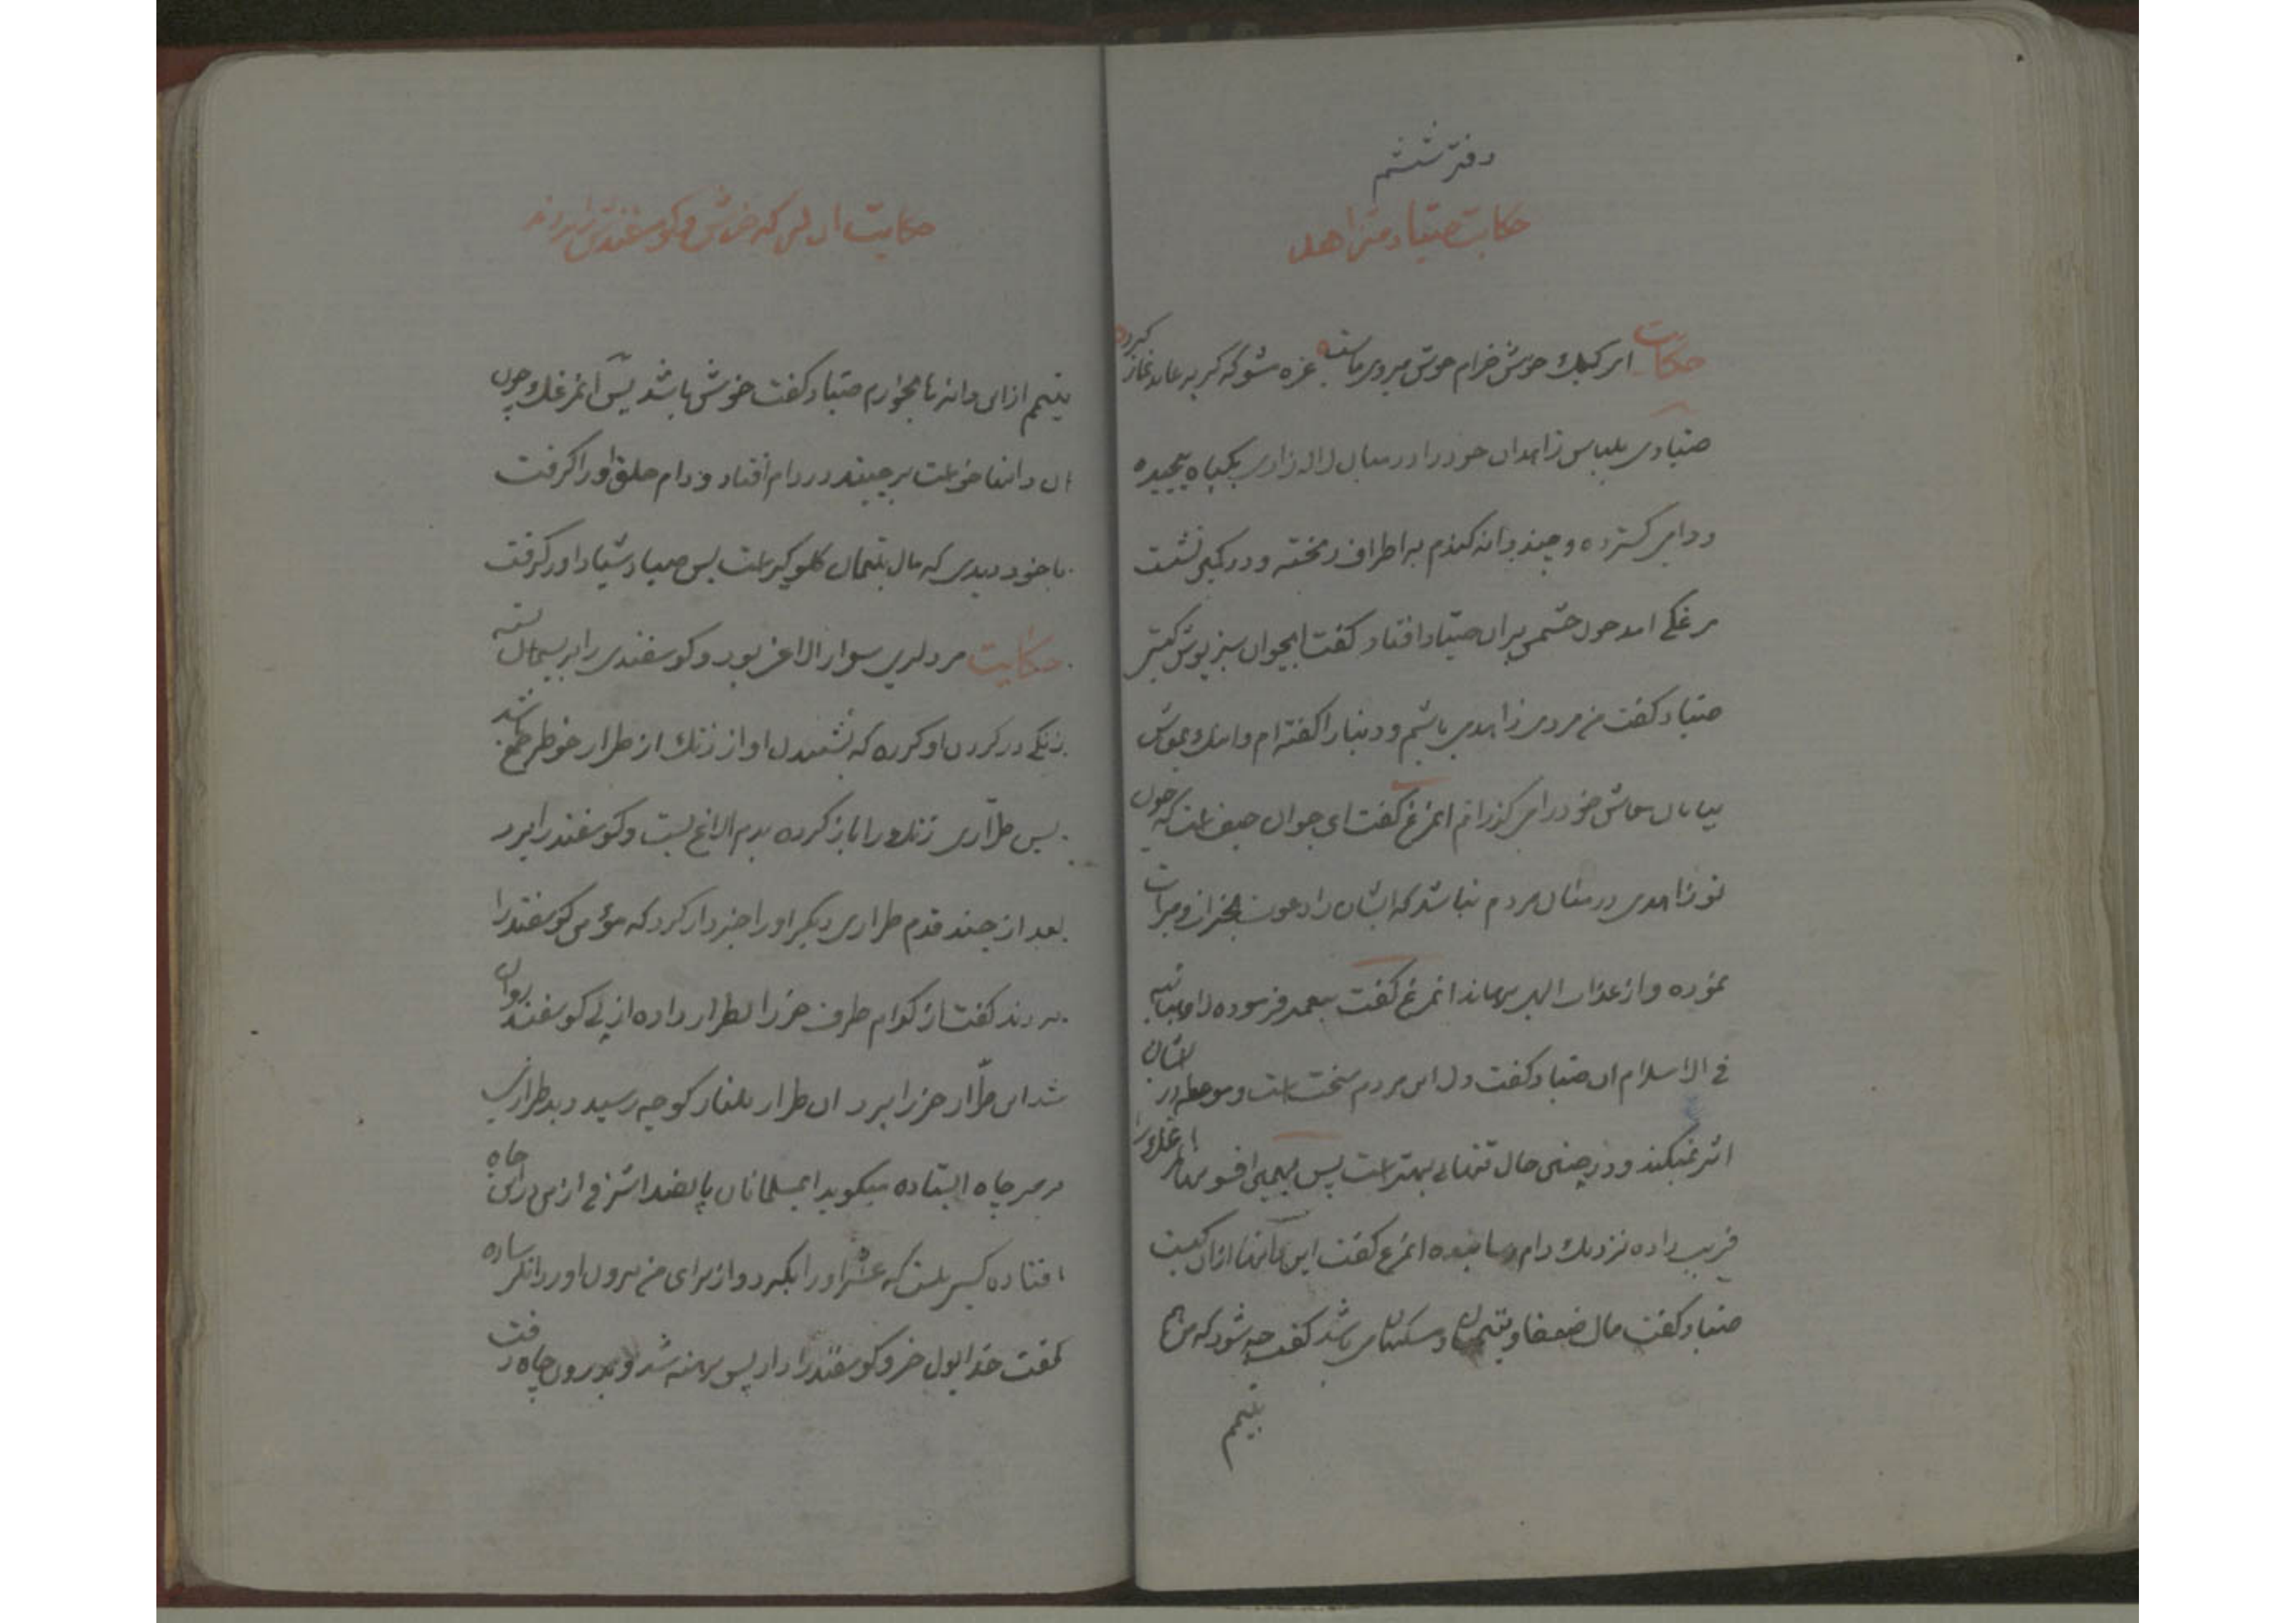 دفتر ششم
حکایت صیاد متزاهد
حکایت ای کبک خوش خرام خوش میروی بایست غره مشو که گربه عابد نماز کرد
صیادی بلباس زاهدان خود را در میان لاله زاری بگیاه پیچیده
و دامی گسترده و چند دانه گندم به اطراف ریخته و در کمین نشست
مرغکی امد چون چشمش بران صیاد افتاد گفت ایجوان سبز پوش کیستی
صیاد گفت من مردی زاهدی باشم و دنیا را گفته ام و اینک بموش
بیابان معاش خود را می گذرانم انمرغ گفت ای جوان حیف است که چون
تو زاهدی در میان مردم نباشد که ایشان را دعوت بخیرات و مبرات
نموده و از عذاب الهی برهاند انمرغ گفت پیغمبر فرموده لا رهبانیه
فی الاسلام ان صیاد گفت دل این مردم سخت است و موعظه در ایشان
اثر نمیکند و در چنین حال تنهائی بهتر است پس بهمین افسونها مرغک را
فریب داده نزدیک دام رسانیده انمرغ گفت این دانها ازان کیست
صیاد گفت مال ضعفا و یتیمان و مسکینان می باشد گفت چه شود که من هم
یتیمم
حکایت ان لر که خرش و گوسفندش را بردند
یتیمم از این دانه ها بخورم صیاد گفت خوش باشد پس انمرغک چون
ان دانها خواست برچیند در دام افتاد و دام حلق او را گرفت
با خود دیدی که مال یتیمان گلوگیر است پس صیاد شیاد او را گرفت
حکایت مرد لری سوار الاغی بود و گوسفندی را بریسمان بسته
زنگی در گردن او کرده که بشنیدن اواز زنک از طرار خاطر جمع باشد
پس طراری زنک را باز کرده بدم الاغ بست و گوسفند را برد
بعد از چند قدم طراری دیگر او را خبردار کرد که موسی گوسفند را
بردند گفت از کدام طرف خر را بطرار داده از پی گوسفند روان
شد این طرار خر را برد ان طرار بلنار کوچه رسید دید طراری
بر سر چاه ایستاده میگوید ایمسلمانان پانصد اشرفی از من در این چاه
افتاده کسی نیست که عشر او را بگیرد و از برای من بیرون اورد انلر ساده
گفت خدا پول خر و گوسفند را داد پس برهنه شد و بدرون چاه رفت